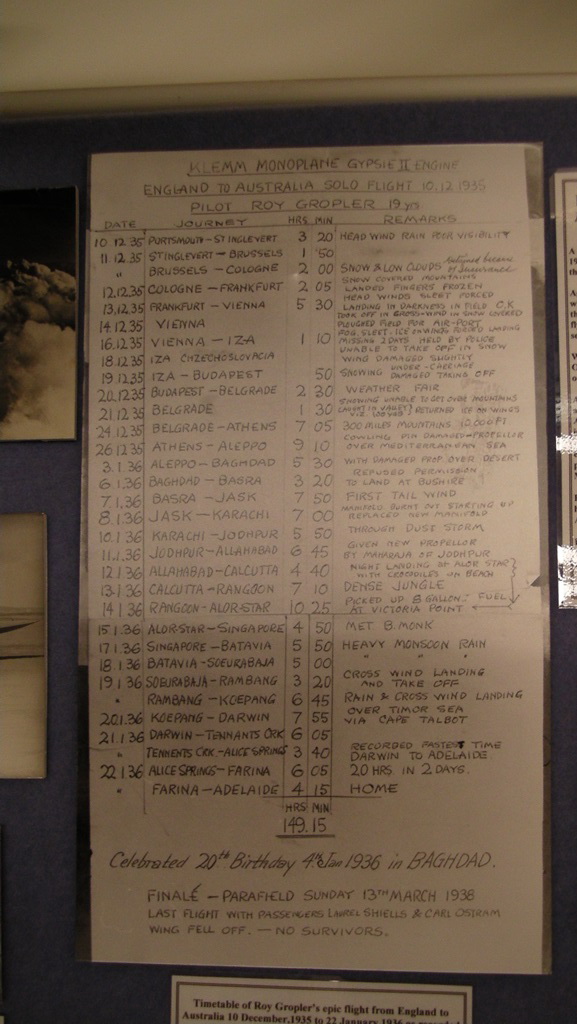 KLEMM MONOPLANE GYPSIE II ENGINE
ENGLAND TO AUSTRALIA SOLO FLIGHT 10.12.1935
PILOT ROY GROPLER 19 yrs
DATE JOURNEY HRS MIN REMARKS
10.12.35 PORTSMOUTH – ST INGLEVERT 3 20 HEAD WIND RAIN POOR VISIBILITY
11.12.35 ST INGLEVERT – BRUSSELS 1 50
" BRUSSELS – COLOGNE 2 00 SNOW & LOW CLOUDS
12.12.35 COLOGNE – FRANKFURT 2 05 SNOW COVERED MOUNTAINS LANDED FINGERS FROZEN
13.12.35 FRANKFURT – VIENNA 5 30 HEAD WINDS SLEET FORCED LANDING IN DARKNESS IN FIELD O.K
14.12.35 VIENNA TOOK OFF IN CROSS-WIND IN SNOW COVERED PLOUGHED FIELD FOR AIR-PORT
16.12.35 VIENNA – IZA 1 10 FOG, SLEET, ICE ON WINGS FORCED LANDING MISSING 2 DAYS HELD BY POLICE
18.12.35 IZA CHZECHOSLOVACIA UNABLE TO TAKE OFF IN SNOW WING DAMAGED SLIGHTLY
19.12.35 IZA – BUDAPEST 50 SNOWING UNDER-CARRIAGE DAMAGED TAKING OFF
20.12.35 BUDAPEST – BELGRADE 2 30 WEATHER FAIR
21.12.35 BELGRADE 1 30 SNOWING UNABLE TO GET OVER MOUNTAINS CAUGHT IN VALLEY RETURNED ICE ON WINGS
24.12.35 BELGRADE – ATHENS 7 05 300 MILES MOUNTAINS 10,000 FT
26.12.35 ATHENS – ALEPPO 9 10 COWLING PIN DAMAGED – PROPELLER OVER MEDITERRANEAN SEA
3.1.36 ALEPPO – BAGHDAD 5 30 WITH DAMAGED PROP OVER DESERT
6.1.36 BAGHDAD – BASRA 3 20 REFUSED PERMISSION TO LAND AT BUSHIRE
7.1.36 BASRA – JASK 7 50 FIRST TAIL WIND
8.1.36 JASK – KARACHI 7 00 MANIFOLD BURNT OUT STARTING UP REPLACED NEW MANIFOLD
10.1.36 KARACHI – JODHPUR 5 50 THROUGH DUST STORM
11.1.36 JODHPUR – ALLAHABAD 6 45 GIVEN NEW PROPELLOR BY MAHARAJA OF JODHPUR
12.1.36 ALLAHABAD – CALCUTTA 4 40 NIGHT LANDING AT ALOR STAR WITH CROCODILES ON BEACH
13.1.36 CALCUTTA – RANGOON 7 10 DENSE JUNGLE
14.1.36 RANGOON – ALOR-STAR 10 25 PICKED UP 8 GALLON FUEL AT VICTORIA POINT
15.1.36 ALOR-STAR – SINGAPORE 4 50 MET B. MONK
17.1.36 SINGAPORE – BATAVIA 5 50 HEAVY MONSOON RAIN
18.1.36 BATAVIA – SOEURABAJA 5 00 " " "
19.1.36 SOEURABAJA – RAMBANG 3 20 CROSS WIND LANDING AND TAKE OFF
" RAMBANG – KOEPANG 6 45 RAIN & CROSS WIND LANDING
20.1.36 KOEPANG – DARWIN 7 55 OVER TIMOR SEA VIA CAPE TALBOT
21.1.36 DARWIN – TENNANTS CRK 6 05
" TENNENTS CRK. – ALICE SPRINGS 3 40 RECORDED FASTEST TIME DARWIN TO ADELAIDE.
22.1.36 ALICE SPRINGS – FARINA 6 05 20 HRS IN 2 DAYS.
" FARINA – ADELAIDE 4 15 HOME
HRS MIN
149.15
Celebrated 20th Birthday 4th Jan 1936 in BAGHDAD.
FINALÉ – PARAFIELD SUNDAY 13TH MARCH 1938
LAST FLIGHT WITH PASSENGERS LAUREL SHIELLS & CARL OSTRAM
WING FELL OFF. – NO SURVIVORS.
Timetable of Roy Gropler's epic flight from England to
Australia 10 December, 1935 to 22 January 1936